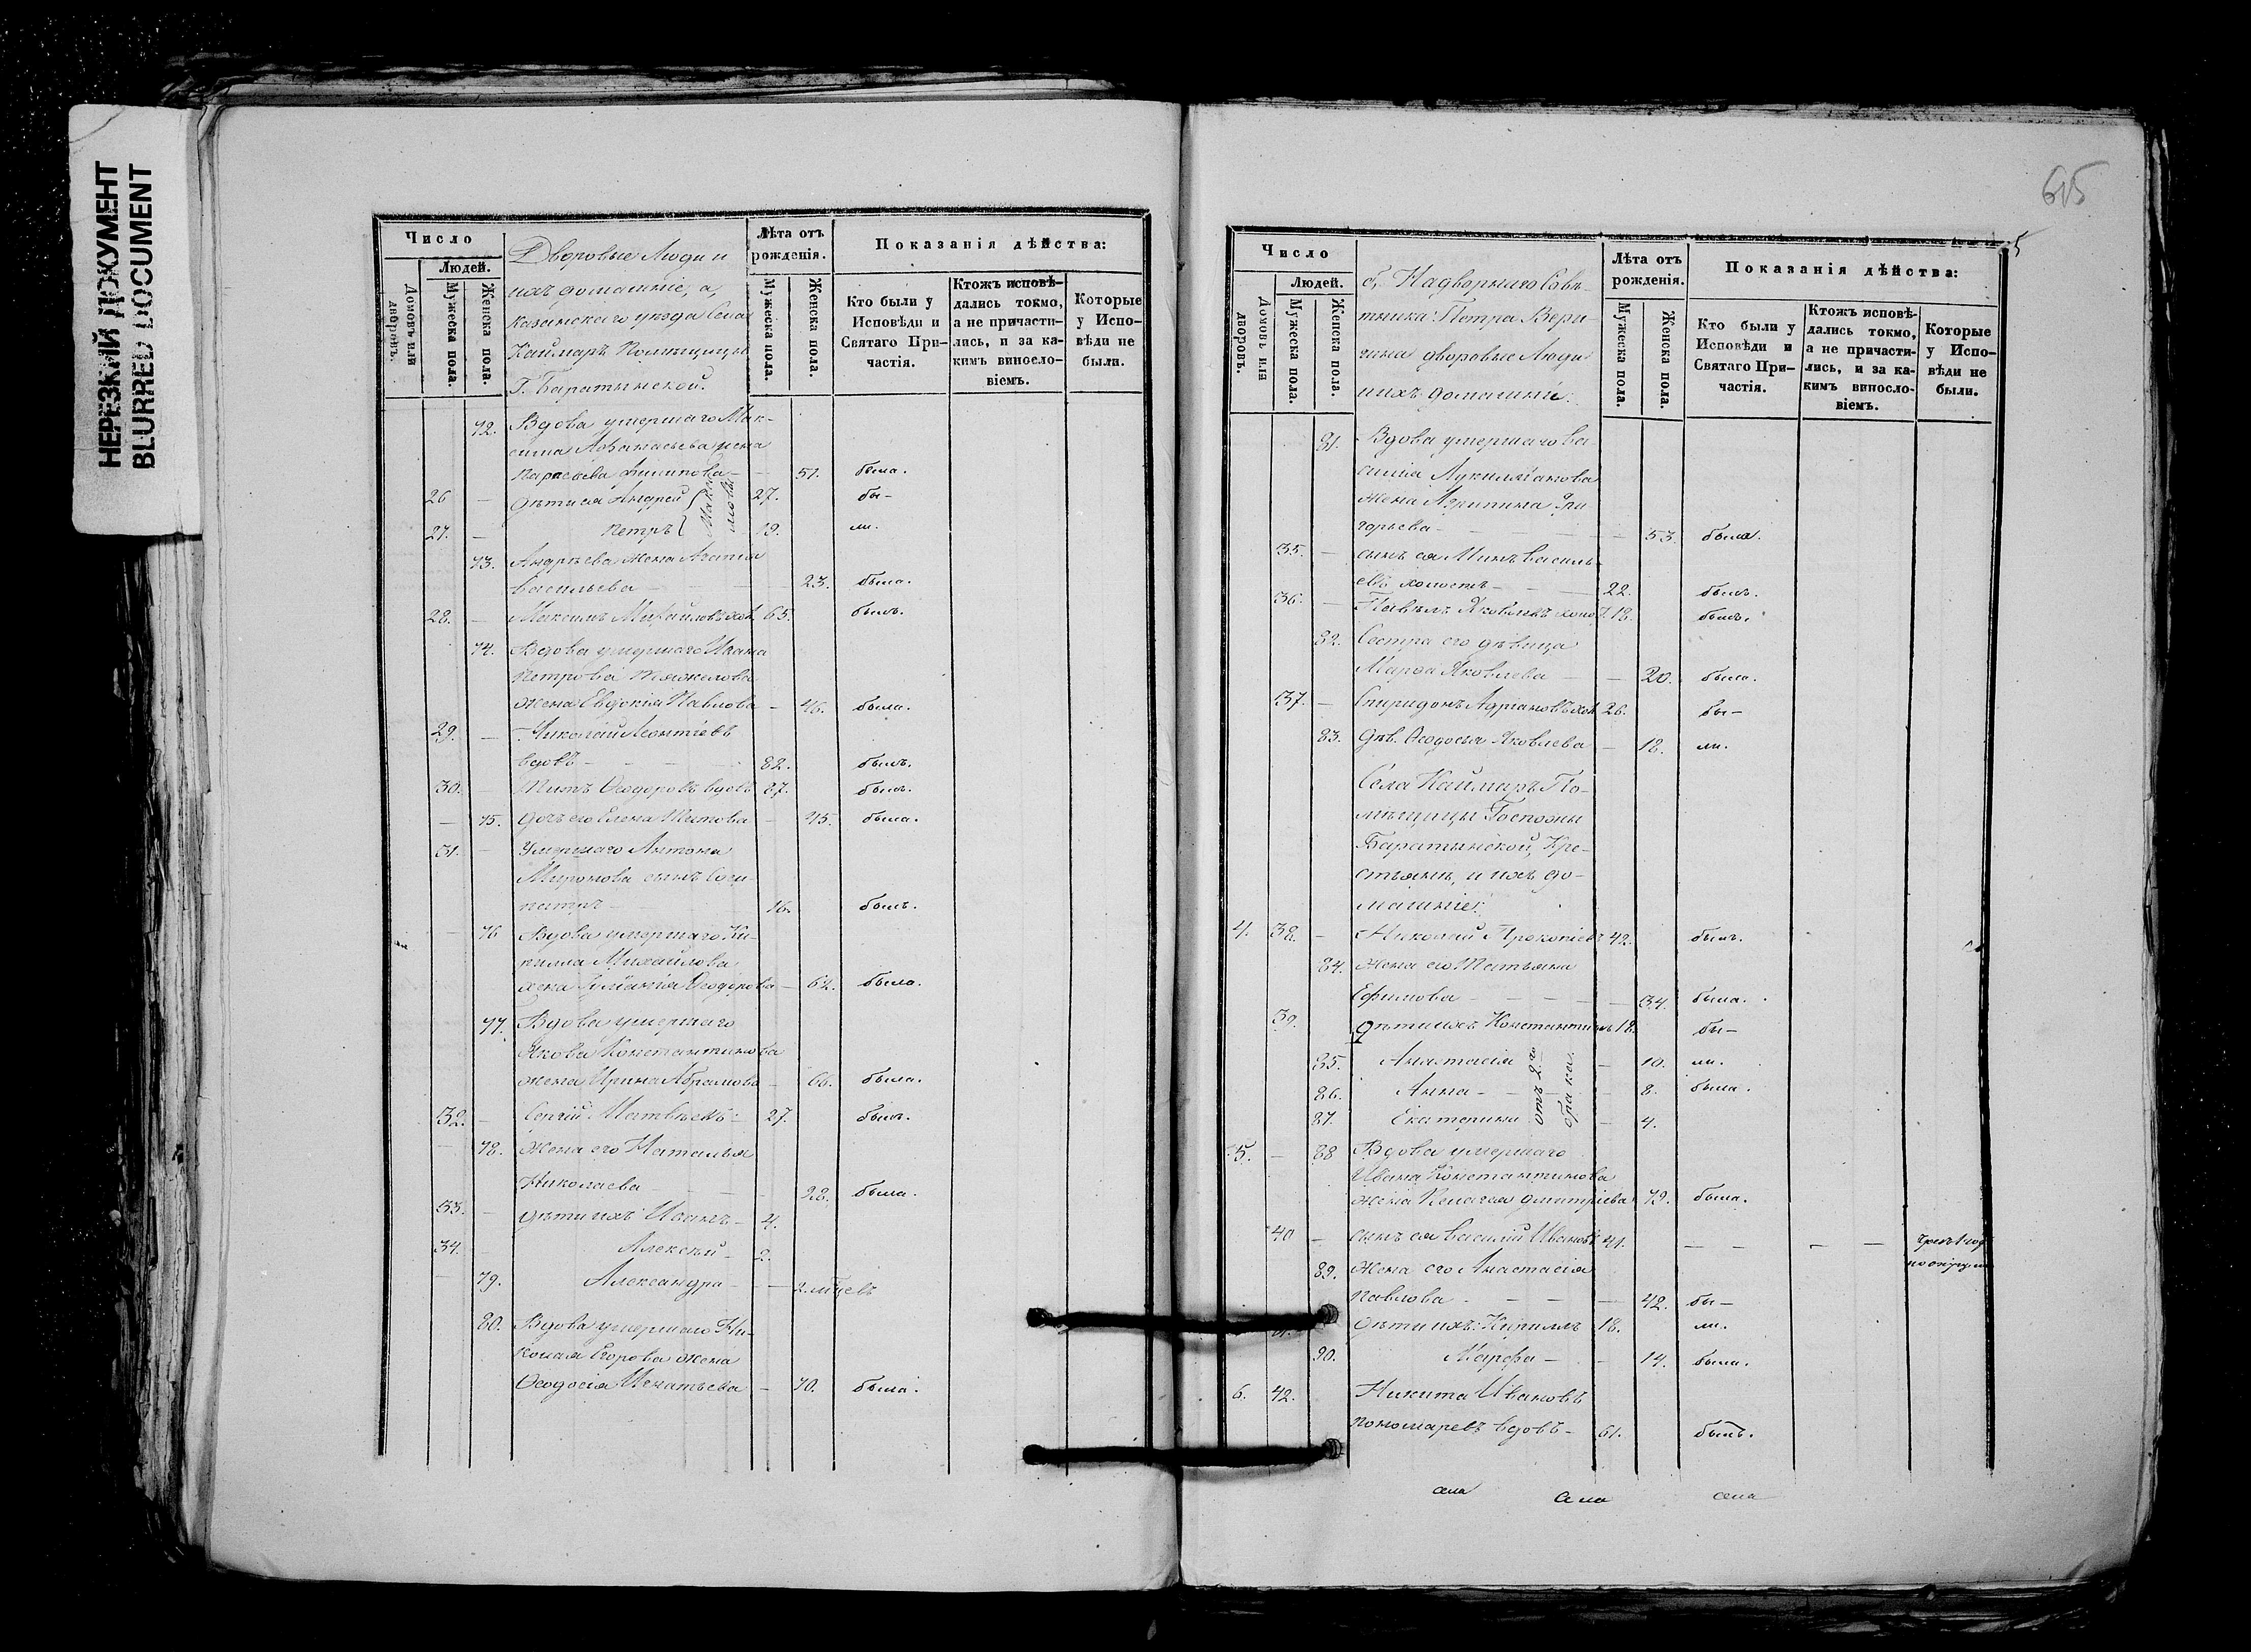 НЕРЕЗКИЙ ДОКУМЕНТ
BLURRED DOCUMENT
Число
Людей.
Домовъ или дворовъ.
Мужеска пола.
Женска пола.
Дворовые Люди и
ихъ домашніе, а,
Казанскаго уезда Села
Каймаръ Помѣщицы
Г. Баратынской.
Лѣта отъ рожденія.
Мужеска пола.
Женска пола.
Показанія дѣйства:
Кто были у Исповѣди и Святаго Причастія.
Ктожъ исповѣ-
дались токмо,
а не причасти-
лись, и за ка-
кимъ виносло-
віемъ.
Которые
у Испо-
вѣди не
были.
72. Вдова умершаго Мак-
сима Афанасьева жена
Параскева Филипова — 51. была.
26 — дѣти ея Андрей 27. бы-
27. — Петръ 19. ли.
Максимовы
73. Андреева жена Агапія
Васильева — 23. была.
28. — Максимъ Михайловъ хол. 65. былъ.
74. Вдова умершаго Ивана
Петрова
жена Евдокія Павлова — 46. была.
29. — Николай Леонтіевъ
вдовъ — 82. былъ.
30. — Титъ Ѳеодоровъ вдовъ 87. былъ.
— 75. дочь его Елена Титова — 45. была.
31. — Умершаго Антона
Миронова сынъ Соси-
патръ — 16. былъ.
— 76 Вдова умершаго Ки-
рилла Михайлова
жена Ѳеодорова — 64. была.
77. Вдова умершаго
Якова Константинова
жена Ирина Абрамова — 66. была.
32. — Сергій Матвѣевъ — 27. былъ.
— 78. Жена его Наталья
Николаева — 28. была.
33. — дѣти ихъ Иванъ — 4.
34. — Алексѣй — 2.
— 79. Александра — 2. мцевъ
80. Вдова умершаго Ни-
колая Егорова жена
Ѳеодосія Игнатьева — 70. была.
615
5
Число
Людей.
Домовъ или дворовъ.
Мужеска пола.
Женска пола.
б, Надворнаго Совѣ-
тника Петра Вери-
гина дворовые Люди
и ихъ домашніе.
Лѣта отъ рожденія.
Мужеска пола.
Женска пола.
Показанія дѣйства:
Кто были у
Исповѣди и
Святаго При-
частія.
Ктожъ исповѣ-
дались токмо,
а не причасти-
лись, и за ка-
кимъ виносло-
віемъ.
Которые
у Испо-
вѣди не
были.
81. Вдова умершаго Ва-
силія
жена Агрипина Гри-
горьева — 53. была.
35. — сынъ ея Василь-
евъ холостъ — 22. былъ.
36. — Павелъ Яковлевъ холо. 18. былъ.
82. Сестра его дѣвица
Марфа Яковлева — 20. была.
37. — Спиридонъ Адріановъ хол 26. бы-
83. дѣв. Ѳеодосья Яковлева — 18. ли.
Села Каймаръ По-
мѣщицы Госпожи
Баратынской, Кре-
стьяне, и ихъ до-
машніе:
4. 38. — Николай Прокопіевъ 42. былъ.
84. Жена его Татьяна
Ефимова — 34. была.
39. дѣти ихъ Константинъ 18. бы-
85. Анастасія — 10. ли.
86. Анна — 8. была.
87. Екатерина — 4.
отъ 2го брака.
5. — 88 Вдова умершаго
Ивана Константинова
жена Пелагея Дмитріева 79. была.
40 — сынъ ея Василій Ивановъ 41. — — — —
89. Жена его Анастасія
Павлова — 42. бы-
дѣти ихъ: Кириллъ 18. ли.
90. Марфа — 14. была.
6. 42. Никита Ивановъ
Пономаревъ вдовъ — 61. былъ.